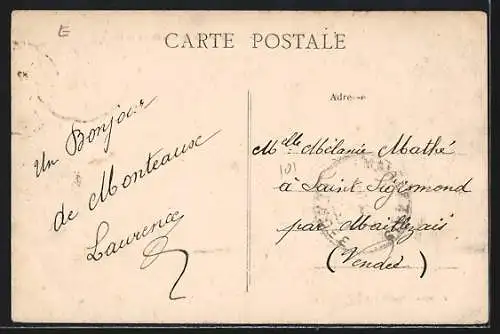 E
CARTE POSTALE
Adresse
Un Bonjour
de Monteaux
Laurence
Melle Mélanie Mathé
101
à Saint Sigismond
par Maillezais
(Vendée)